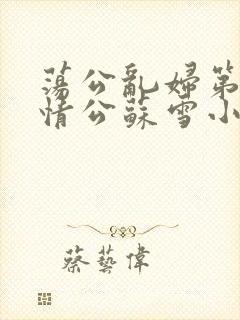 蕩公亂婦第
情公蘇雪小
蔡藝偉